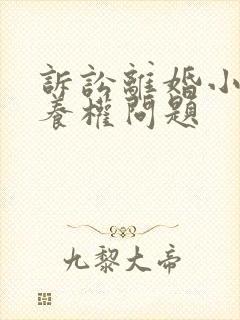 訴訟離婚小
養權問題
九黎大帝